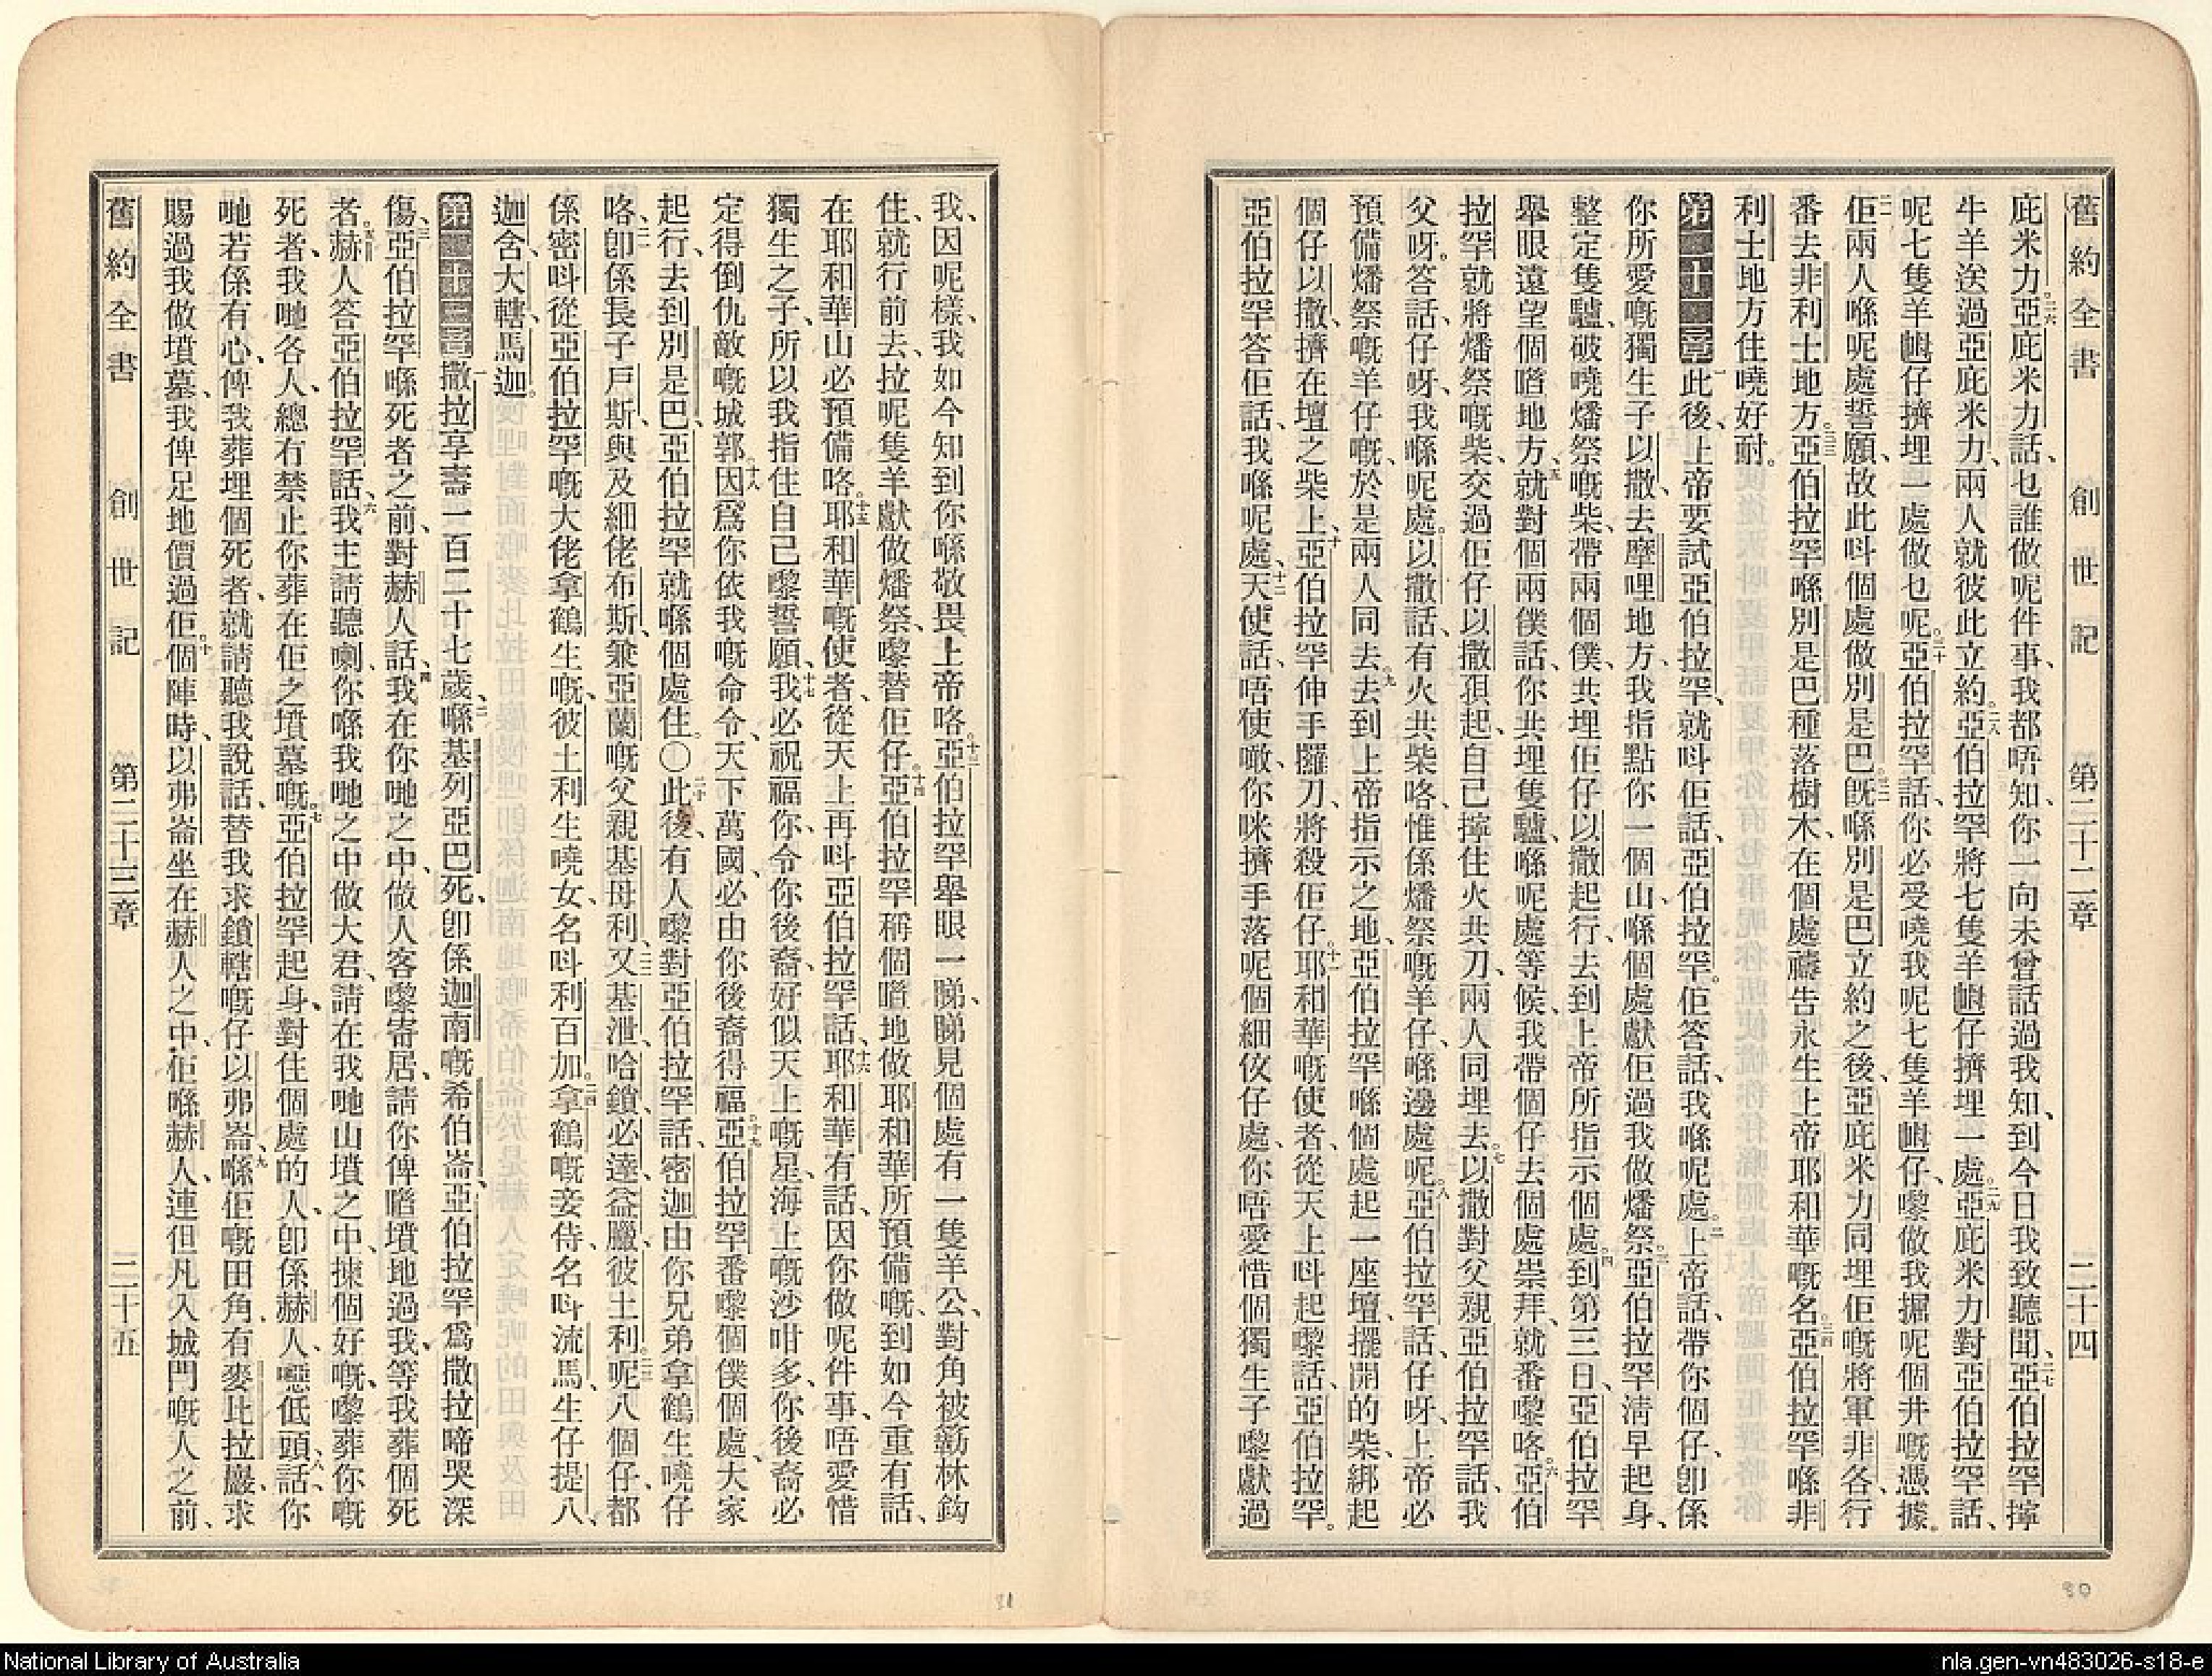 舊約全書 創世記 第二十二章 二十四
庇米力、亞庇米力話、乜誰做呢件事、我都唔知、你一向未曾話過我知、到今日我致聽聞、亞伯拉罕擰
牛羊送過亞庇米力、兩人就彼此立約。亞伯拉罕將七隻羊𡜵仔擠埋一處。亞庇米力對亞伯拉罕話、
呢七隻羊𡜵仔擠埋一處做乜呢。亞伯拉罕話、你必受曉我呢七隻羊𡜵仔、嚟做我掘呢個井嘅憑據。
佢兩人喺呢處誓願、故此呌個處做別是巴。旣喺別是巴立約之後、亞庇米力同埋佢嘅將軍非各、行
番去非利士地方。亞伯拉罕喺別是巴種落樹木、在個處禱告永生上帝耶和華嘅名。亞伯拉罕喺非
利士地方住曉好耐。
第二十二章 此後、上帝要試亞伯拉罕、就呌佢話、亞伯拉罕。佢答話、我喺呢處。上帝話、帶你個仔、卽係
你所愛嘅獨生子以撒、去摩哩地方、我指點你一個山、喺個處獻佢過我做燔祭。亞伯拉罕淸早起身、
整定隻驢、破曉燔祭嘅柴、帶兩個僕、共埋佢仔以撒起行、去到上帝所指示個處。到第三日、亞伯拉罕
舉眼遠望個喈地方、就對個兩僕話、你共埋隻驢、喺呢處等候、我帶個仔去個處崇拜、就番嚟咯。亞伯
拉罕就將燔祭嘅柴、交過佢仔以撒孭起、自己擰住火共刀、兩人同埋去。以撒對父親亞伯拉罕話、我
父呀。答話、仔呀、我喺呢處。以撒話、有火共柴咯、惟係燔祭嘅羊仔、喺邊處呢。亞伯拉罕話、仔呀、上帝必
預備燔祭嘅羊仔嘅、於是兩人同去。去到上帝指示之地、亞伯拉罕喺個處起一座壇、擺開的柴、綁起
個仔以撒、擠在壇之柴上。亞伯拉罕伸手攞刀、將殺佢仔。耶和華嘅使者、從天上呌起嚟話、亞伯拉罕。
亞伯拉罕答佢話、我喺呢處。天使話、唔使噉、你咪擠手落呢個細伩仔處、你唔愛惜個獨生子嚟獻過
我、因呢樣、我如今知到你喺敬畏上帝咯。亞伯拉罕舉眼一睇、睇見個處有一隻羊公、對角被簕林鈎
住、就行前去、拉呢隻羊獻做燔祭、嚟替佢仔。亞伯拉罕稱個喈地做耶和華所預備嘅、到如今重有話、
在耶和華山必預備咯。耶和華嘅使者、從天上再呌亞伯拉罕話、耶和華有話、因你做呢件事、唔愛惜
獨生之子、所以我指住自己嚟誓願、我必祝福你、令你後裔、好似天上嘅星、海上嘅沙咁多、你後裔必
定得倒仇敵嘅城郭、因爲你依我嘅命令、天下萬國、必由你後裔得福。亞伯拉罕番嚟個僕個處、大家
起行、去到別是巴、亞伯拉罕就喺個處住。〇此後、有人嚟對亞伯拉罕話、密迦由你兄弟拿鶴生曉仔
咯、卽係長子戶斯、與及細佬布斯、兼亞蘭嘅父親基母利、又基泄、哈鎖、必達、益臘、彼土利。呢八個仔、都
係密呌從亞伯拉罕嘅大佬拿鶴生嘅、彼土利生曉女、名呌利百加。拿鶴嘅妾侍、名呌流馬、生仔提八、
迦含、大轄、馬迦。
第二十三章 撒拉享壽一百二十七歲、喺基列亞巴死、卽係迦南嘅希伯崙、亞伯拉罕爲撒拉啼哭深
傷、亞伯拉罕喺死者之前、對赫人話、我在你哋之中、做人客嚟寄居、請你俾喈墳地過我、等我葬個死
者。赫人答亞伯拉罕話、我主請聽喇、你喺我哋之中做大君、請在我哋山墳之中、揀個好嘅、嚟葬你嘅
死者、我哋各人、總冇禁止你葬在佢之墳墓嘅。亞伯拉罕起身、對住個處的人、卽係赫人、噁低頭話、你
哋若係有心、俾我葬埋個死者、就請聽我說話、替我求鎖轄嘅仔以弗崙、喺佢嘅田角、有麥比拉巖、求
賜過我做墳墓、我俾足地價過佢。個陣時、以弗崙坐在赫人之中、佢喺赫人、連但凡入城門嘅人之前、
舊約全書 創世記 第二十三章 二十五
81
80
National Library of Australia
nla.gen-vn483026-s18-e